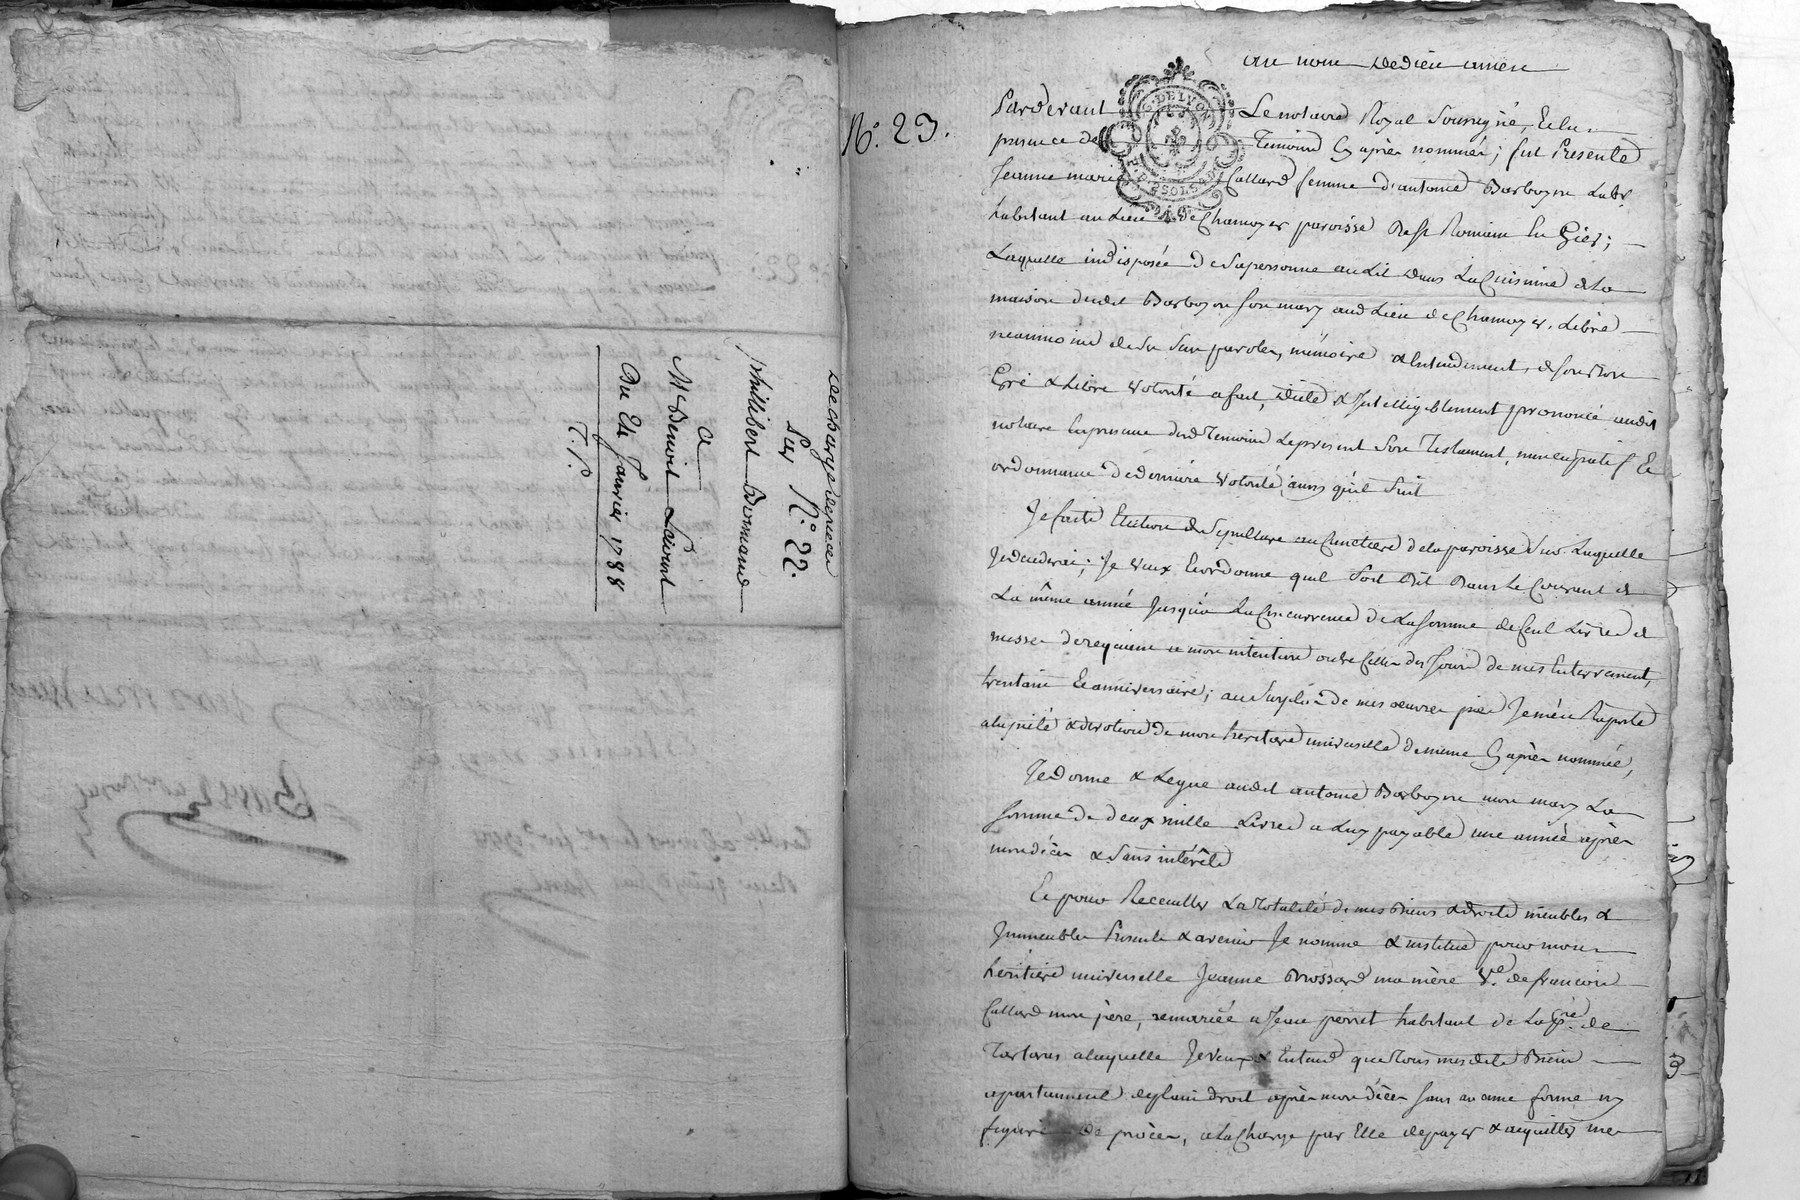 Decharge de piece
Par N.° 22.
Phillibert Durand
a
M.e Benoit Laurent
Du Et. Janvier 1788
N.° 23.
au nom de dieu amen
G. DE LYON
Pardevant Le notaire Royal Soussigné, Et en
presence des Temoins Cy après nommés; fut Presente
Jeanne marie Collard femme d'antoine Barbozon Labr.
habitant au Lieu de Chamoyer paroisse De St Romain En Gier;
Laquelle indisposée de sa personne au Lit dans La Cuisine de La
maison dudit Barbozon son mary aud. Lieu de Chamoyer, Libre
neanmoins de Ses Sens parole, mémoire & Entendement, de son Bon
Gré & Libre volonté a fait, dicté & Intelligiblement prononcé audit
notaire En presence desd. Temoins Le present Son Testament, nuncupatif Et
ordonnance de derniere volonté ainsy qu'il Suit
Je faits Election de Sepulture au Cimetiere de la paroisse Sur Laquelle
Je decederai; Je veux & ordonne qu'il Soit Dit Dans Le Courant de
La même année Jusqu'à La Concurrence de La Somme de Cent Livres de
messes de requiem a mon intention outre Celles des Jours de mes Enterrement,
trentain Et anniversaire; au Surplus de mes oeuvres pies Je m'en Raporte
a la pieté & devotion de mon heritiere universelle Cy après nommée,
Je donne & Legue audit antoine Barbozon mon mary La
Somme de deux mille Livres a Luy payable une année après
mon décès & Sans intérêts
Et pour Recueillir La Totalité de mes Biens & droits meubles &
Immeubles Presents & avenir Je nomme & institue pour mon
héritiere universelle Jeanne Brossard ma mère V.e de francois
Collard mon père, remariée a Jean perret habitant de La p.sse de
Tartaras a laquelle Je veux & Entend que Tous mesdits Biens
apartiennent de plain droit après mon décès Sans aucune forme ny
figure de procès, a La Charge par Elle de payer & acquitter mes